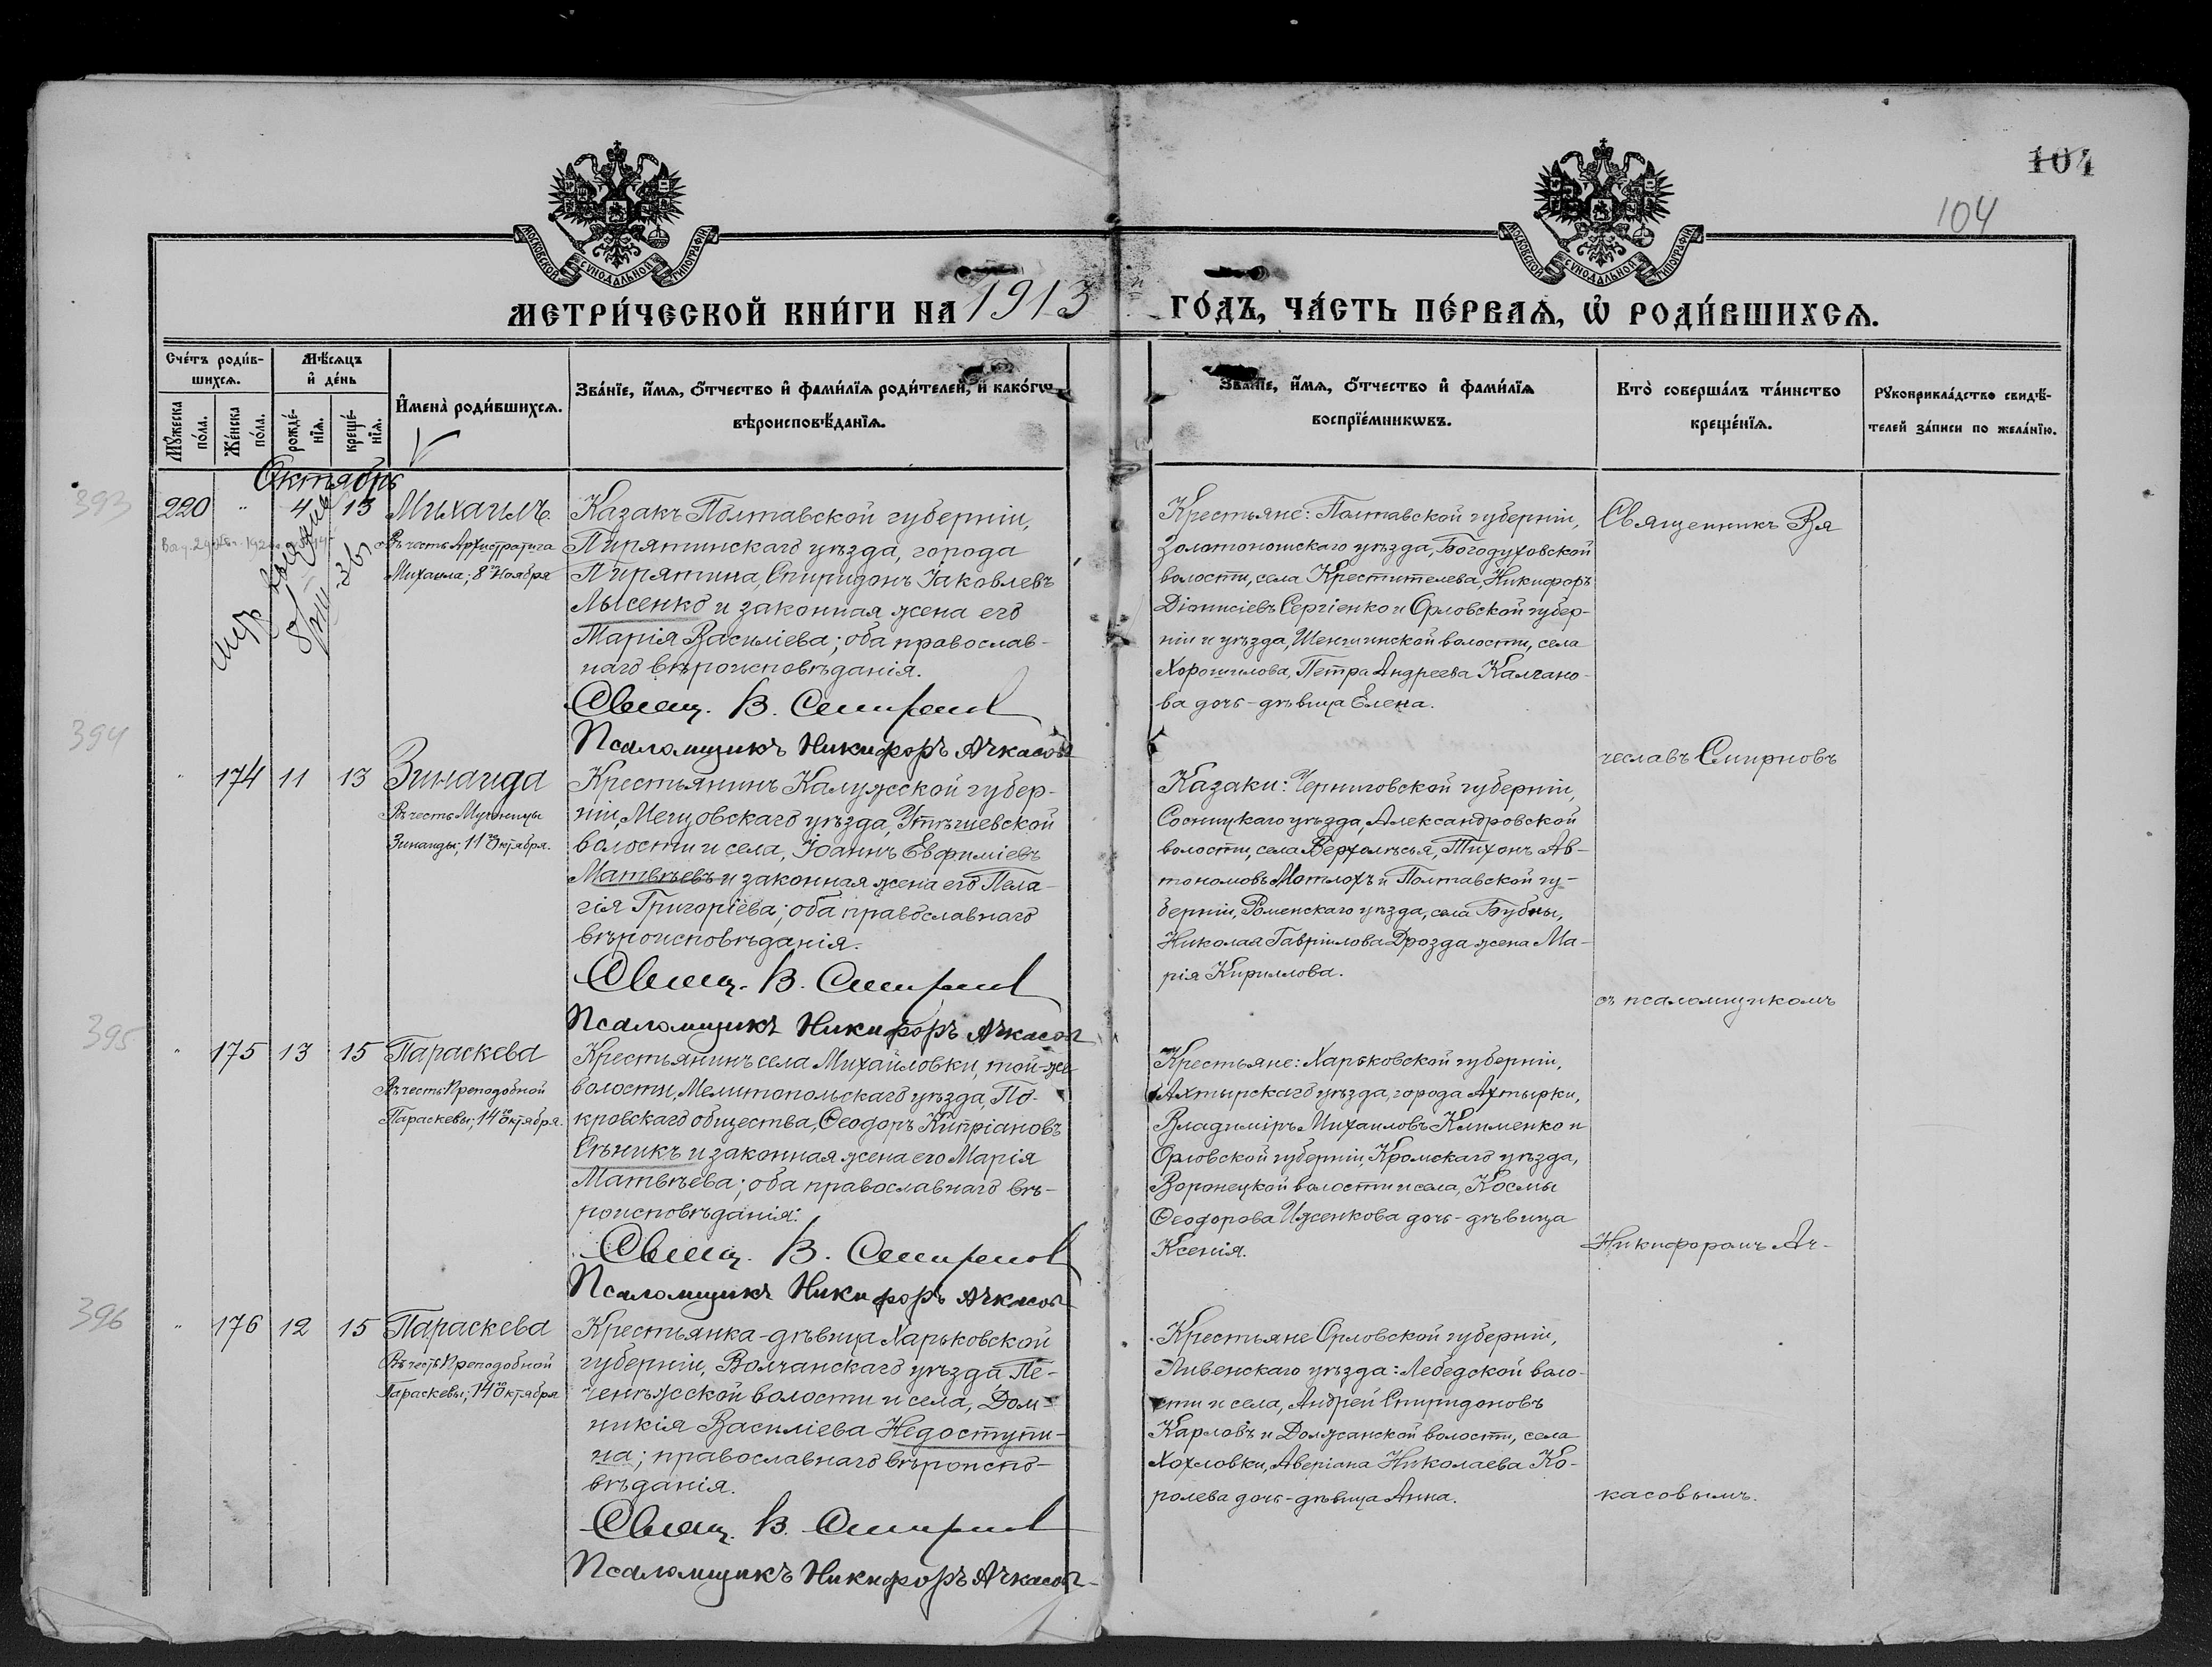 104
104
МОСКОВСКОЙ СѴНОДАЛЬНОЙ ТИПОГРАФІИ
МОСКОВСКОЙ СѴНОДАЛЬНОЙ ТИПОГРАФІИ
МЕТРИ́ЧЕСКОЙ КНИ́ГИ НА 1913 ГО́ДЪ, ЧА́СТЬ ПЕ́РВАѦ, Ѡ҆ РОДИ́ВШИХСѦ.
Сче́тъ роди́в-
шихсѧ.
Мꙋ́жеска по́ла.
Же́нска по́ла.
Мѣ́сѧцъ
и҆ де́нь
рожде́-
нїѧ.
креще́-
нїѧ.
И҆мена̀ роди́вшихсѧ.
Зва́нїе, и҆́мѧ, ѻ҆́тчество и҆ фами́лїѧ роди́телей, и҆ како́гѡ
вѣроисповѣ́данїѧ.
Зва́нїе, и҆́мѧ, ѻ҆́тчество и҆ фами́лїѧ
воспрїе́мникѡвъ.
Кто̀ соверша́лъ та́инство
креще́нїѧ.
Рꙋкоприкла́дство свидѣ́-
телей за́писи по жела́нїю.
Октябрь
393
220 " 4 13 Михаилъ.
Въ честь Архистратига
Михаила; 8го Ноября
Казакъ Полтавской губерніи,
Пирятинскаго уѣзда, города
Пирятина, Спиридонъ Іаковлевъ
Лысенко и законная жена его
Марія Василіева; оба православ-
наго вѣроисповѣданія.
Свящ. В. Смирновъ
Псаломщикъ Никифоръ Ачкасовъ
Крестьяне: Полтавской губерніи,
Золотоношскаго уѣзда, Богодуховской
волости, села Крестителева, Никифоръ
Діонисіевъ Сергіенко и Орловской губер-
ніи и уѣзда, Шеншинской волости, села
Хорошилова, Петра Андреева Калгано-
ва дочь-дѣвица Елена.
Священникъ Вя
394
" 174 11 13 Зинаида
Въ честь Мученицы
Зинаиды; 11го Октября.
Крестьянинъ Калужской губер-
ніи, Мещовскаго уѣзда, Утѣшевской
волости и села, Іоаннъ Евфиміевъ
Матвѣевъ и законная жена его Пела-
гія Григоріева; оба православнаго
вѣроисповѣданія.
Свящ. В. Смирновъ
Псаломщикъ Никифоръ Ачкасовъ
Казаки: Черниговской губерніи,
Сосницкаго уѣзда, Александровской
волости, села Верхолѣсья, Тихонъ Ав-
тономовъ Мотлохъ и Полтавской гу-
берніи, Роменскаго уѣзда, села Бубны,
Николая Гавріилова Дрозда жена Ма-
рія Кириллова.
чеславъ Смирновъ
съ псаломщикомъ
395
" 175 13 15 Параскева
Въ честь Преподобной
Параскевы; 14го Октября.
Крестьянинъ села Михайловки, той-же
волости, Мелитопольскаго уѣзда, По-
кровскаго общества, Ѳеодоръ Кипріановъ
Сѣникъ и законная жена его Марія
Матвѣева; оба православнаго вѣ-
роисповѣданія.
Свящ. В. Смирновъ
Псаломщикъ Никифоръ Ачкасовъ
Крестьяне: Харьковской губерніи,
Ахтырскаго уѣзда, города Ахтырки,
Владиміръ Михаиловъ Клименко и
Орловской губерніи, Кромскаго уѣзда,
Воронецкой волости и села, Космы
Ѳеодорова Иженкова дочь-дѣвица
Ксенія.
Никифоромъ Ач-
396
" 176 12 15 Параскева
Въ честь Преподобной
Параскевы; 14го Октября
Крестьянка-дѣвица Харьковской
губерніи, Волчанскаго уѣзда, Пе-
ченѣжской волости и села, Дом-
никія Василіева Недоступи-
на; православнаго вѣроиспо-
вѣданія.
Свящ. В. Смирновъ
Псаломщикъ Никифоръ Ачкасовъ
Крестьяне Орловской губерніи,
Ливенскаго уѣзда: Лебедской воло-
сти и села, Андрей Спиридоновъ
Карловъ и Должанской волости, села
Хохловки, Аверіана Николаева Ко-
ролева дочь-дѣвица Анна.
касовымъ.